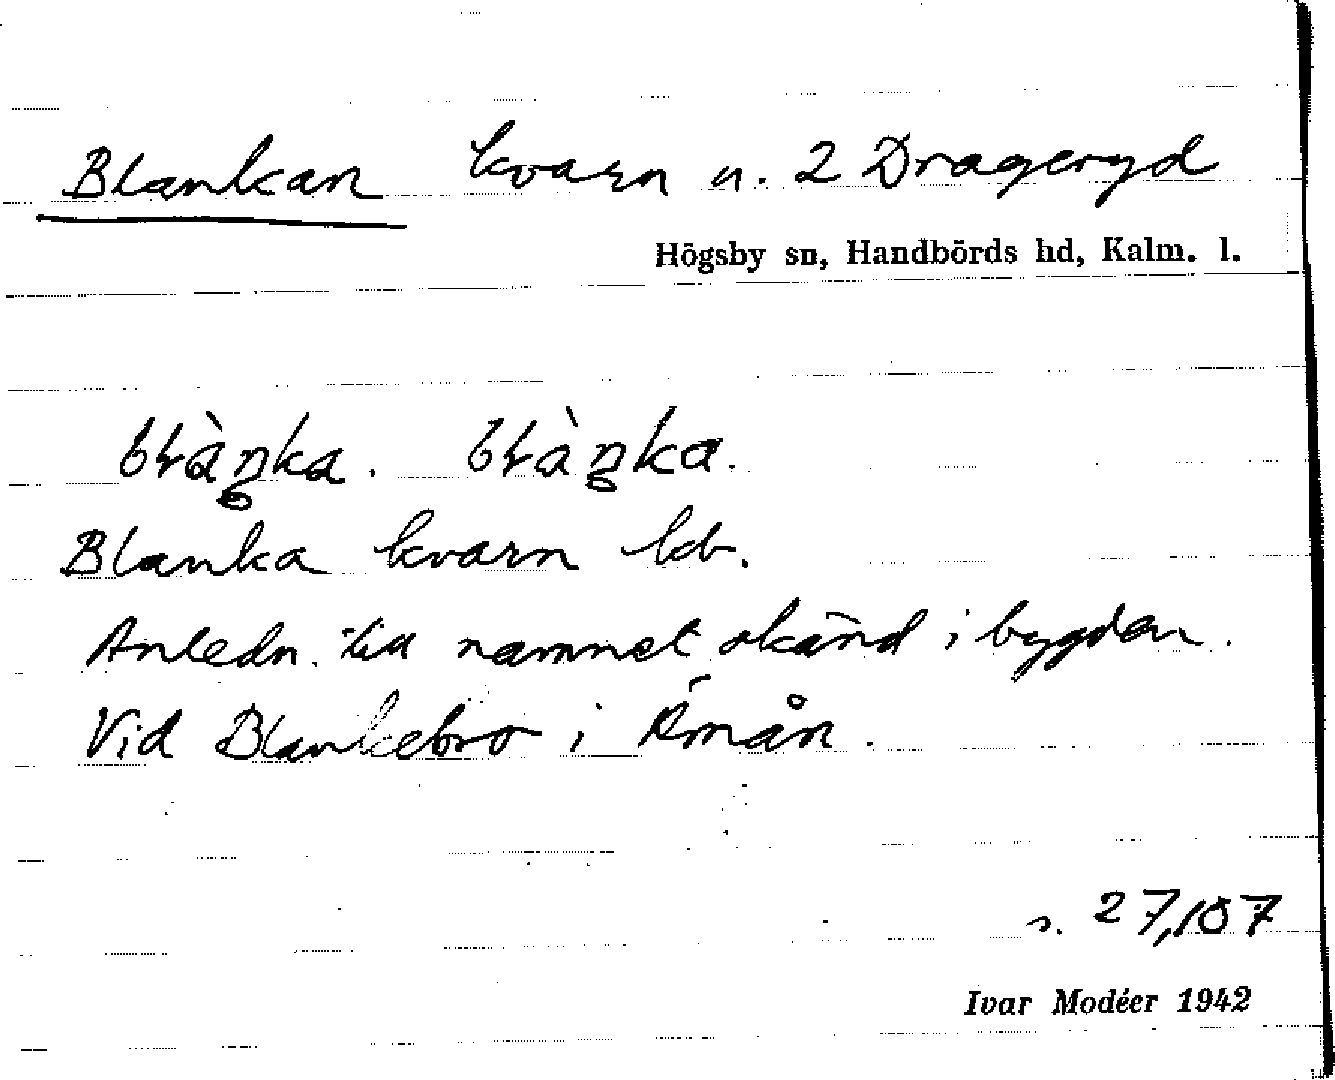 Blankan kvarn u. 2 Drageryd
Högsby sn, Handbörds hd, Kalm. l.
blàŋka. blàŋka.
Blanka kvarn kb.
Anledn. till namnet okänd i bygden.
Vid Blankebro i Emån.
s. 27, 107
Ivar Modéer 1942